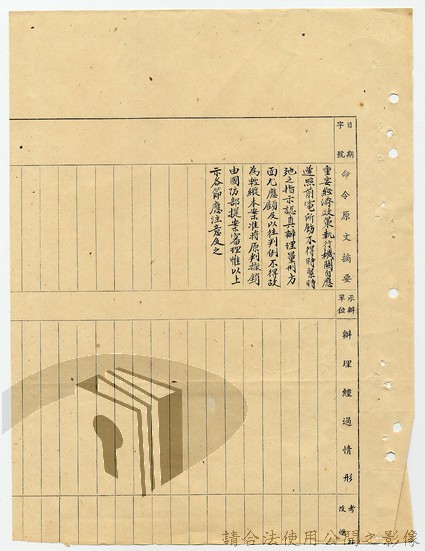 日期
字號
命令原文摘要
承辦單位
辦理經過情形
考
改
重要經濟政策執行機關自應
遵照前電所飭不得時緊時
弛之指示認真辦理量刑方
面尤應顧及以往判例不得故
為輕縱本案准將原判撤銷
由國防部提案審理惟以上
示各節應注意及之
請合法使用公開之影像